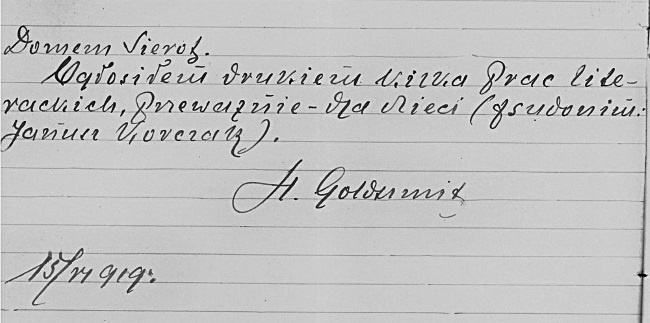 Domem Sierot.
Ogłosiłem drukiem kilka prac lite-
rackich, przeważnie - dla dzieci (pseudonim:
Janusz Korczak).
H. Goldszmit
15/VI 919 r.